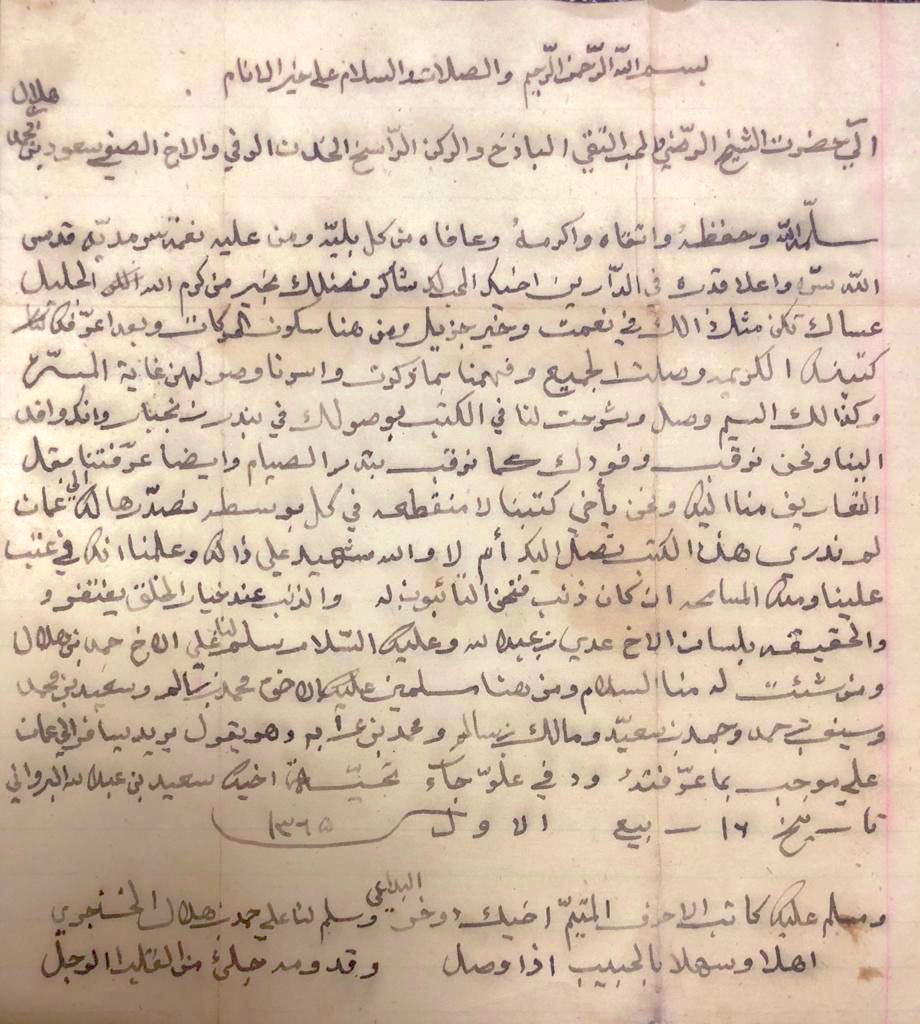 بسم الله الرّحمن الرّحيم والصلات والسلام على خير الانام
الى حضرت الشيخ الرضي المحب التقي الباذخ والركن الرّاسخ الخدن الوفي والاخ الصفي سعود بن احمد هلال
سلّمه الله وحفظه وابقاه واكرمه وعافاه من كل بليّه ومن عليه نعمة سرمديّه قدس
الله سرّه واعلا قدره في الدّارين اخيك المحب لك شاكر فضلك بخير من كرم الله الجليل
عساك تكن مثل ذالك في نعمت وخير جزيل ومن هنا سكون الحركات وبعد اعرّفك
كتبك الكريمه وصلت الجميع وفهمنا بما ذكرت واسرنا وصولهن غاية المسرّه
وكذالك اليم وصل وشرحت لنا في الكتب بوصولك في بندر زنجبار وانك وافد
الينا ونحن نرقب وفودك كما نرقب بدر الصيام وايضا عرّفتنا بقل
التعاريف منا اليك ونحن يأخي كتبنا لا منقطعه في كل بوسطه نصدّرها لك الى عمان
لم ندري هذه الكتب تصل اليك أم لا والله شهيد على ذالك وعلمنا انك في عتب
علينا ومنك المسامحه ان كان ذنب فنحن التائبون له والذنب عند خيار الخلق يغتفرو
والحقيقه بلسان الاخ عدي بن عبدالله وعليك السّلام سلم لنا على الاخ حمد بن هلال
ومن شئت له منا السلام ومن هنا مسلمين عليك الاخوه محمد بن سالم وسعيد بن محمد
وسيف بن حمد وحمد بن سعيّد ومالك بن سالم ومحمد بن عرابه وهو يقول يريد يسافر الى عمان
على موجب بما عرّفته ود في علوّ جاه تحيّة اخيك سعيد بن عبدالله البرواني
تاريخ ١٦ ربيع الاول ١٣٦٥
ومسلم عليك كاتب الاحرف المتيّم اخيك وسلم لنا على حمد بن هلال الخنجري
اهلا وسهلا بالحبيب اذا وصل وقدومه جلى من القلب الوجل